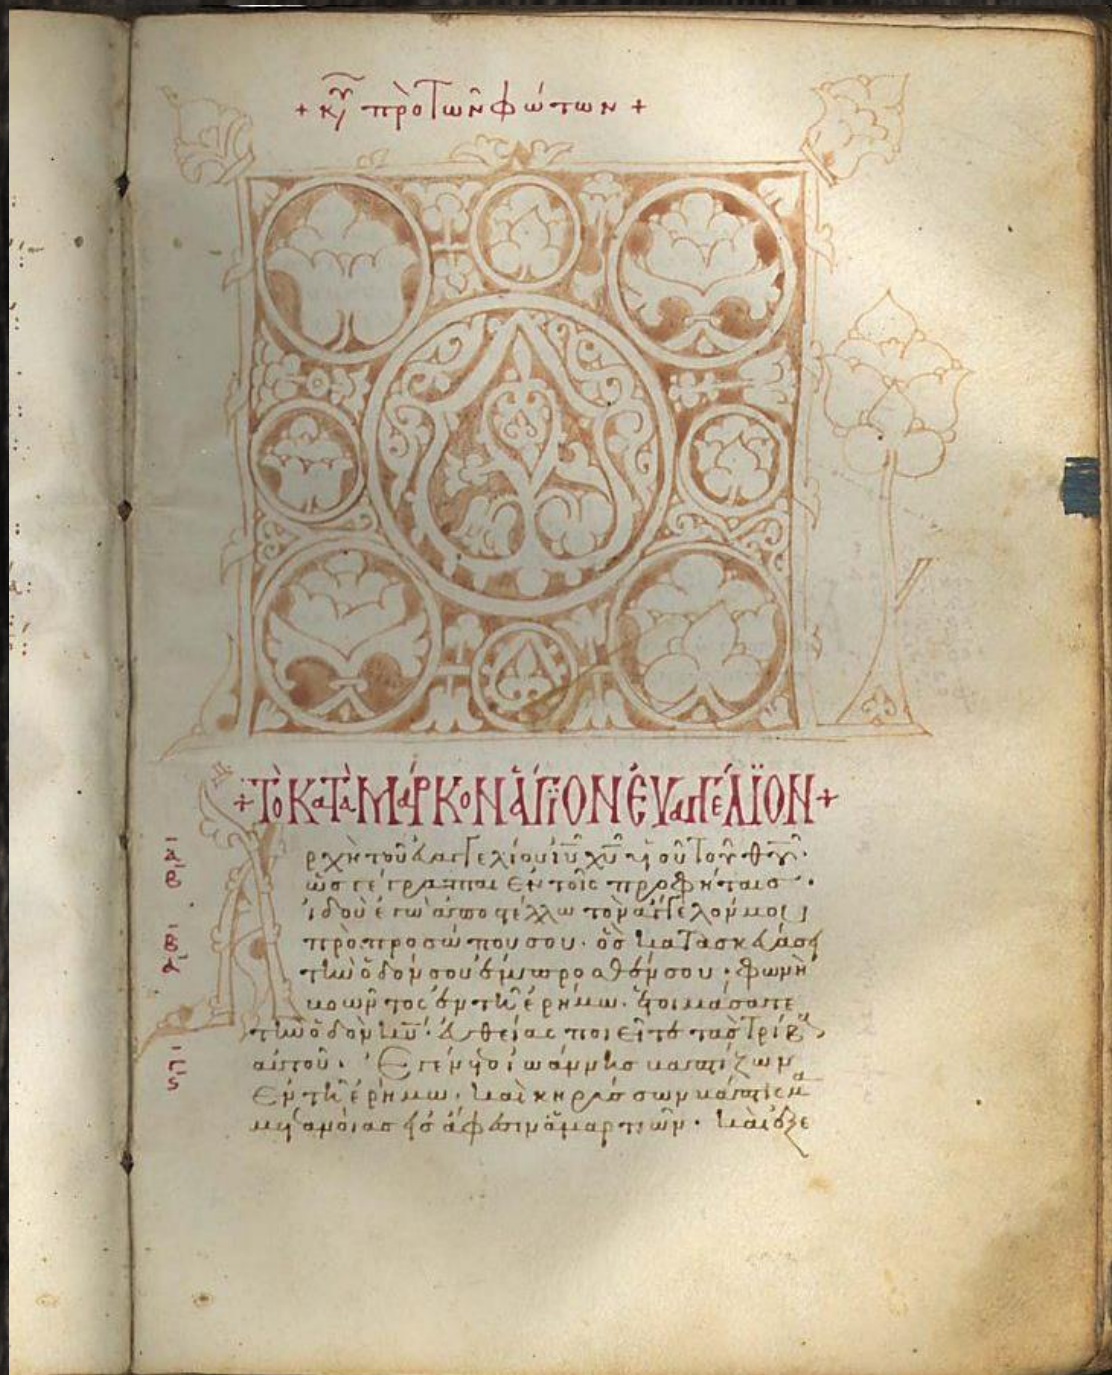 + κυ πρὸ τῶν φώτων +
+ ΤὸΚαΤὰ ΜάΡΚοΝ ἍΓΙΟΝ ἘΥαΓΓέΛΙΟΝ +
Ἀρχὴ τοῦ εὐαγγελίου ιυ χυ υἱοῦ τοῦ θυ·
α
β
ὡς γέγραπται ἐν τοῖς προφήταις·
ἰδοὺ ἐγὼ ἀποστέλλω τὸν ἄγγελόν μου
β
πρὸ προσώπου σου· ὃς κατασκευάσει
α
τὴν ὁδόν σου ἔμπροσθέν σου· φωνὴ
βοῶντος ἐν τῆ ἐρήμω· ἑτοιμάσατε
τὴν ὁδὸν κυ· εὐθείας ποιεῖτε τὰς τρίβους
αὐτοῦ· Ἐγένετο ἰωάννης βαπτίζων
γ
ς
ἐν τῆ ἐρήμω· καὶ κηρύσσων βάπτισμα
μετανοίας εἰς ἄφεσιν ἁμαρτιῶν· καὶ ἐξε